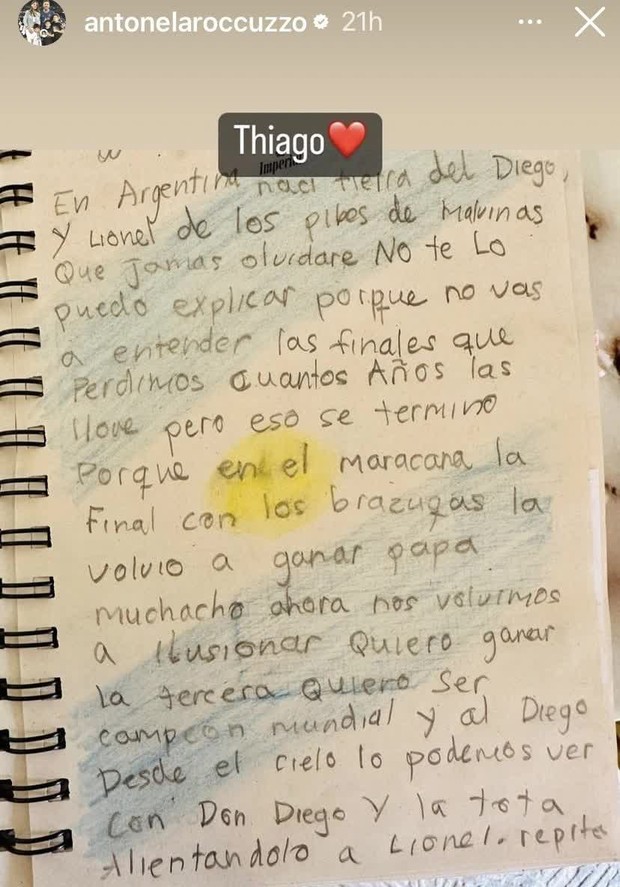 antonelaroccuzzo 21h
Thiago❤️
En Argentina naci tierra del Diego,
y Lionel de los pibes de Malvinas
Que jamas olvidare No te Lo
puedo explicar porque no vas
a entender las finales que
Perdimos cuantos Años las
llore pero eso se termino
Porque en el maracana la
Final con los brazugas la
volvio a ganar papa
muchacho ahora nos volvimos
a ilusionar Quiero ganar
la tercera Quiero ser
campeon mundial y al Diego
Desde el cielo lo podemos ver
Con Don Diego y la tota
Alientandolo a Lionel. repite